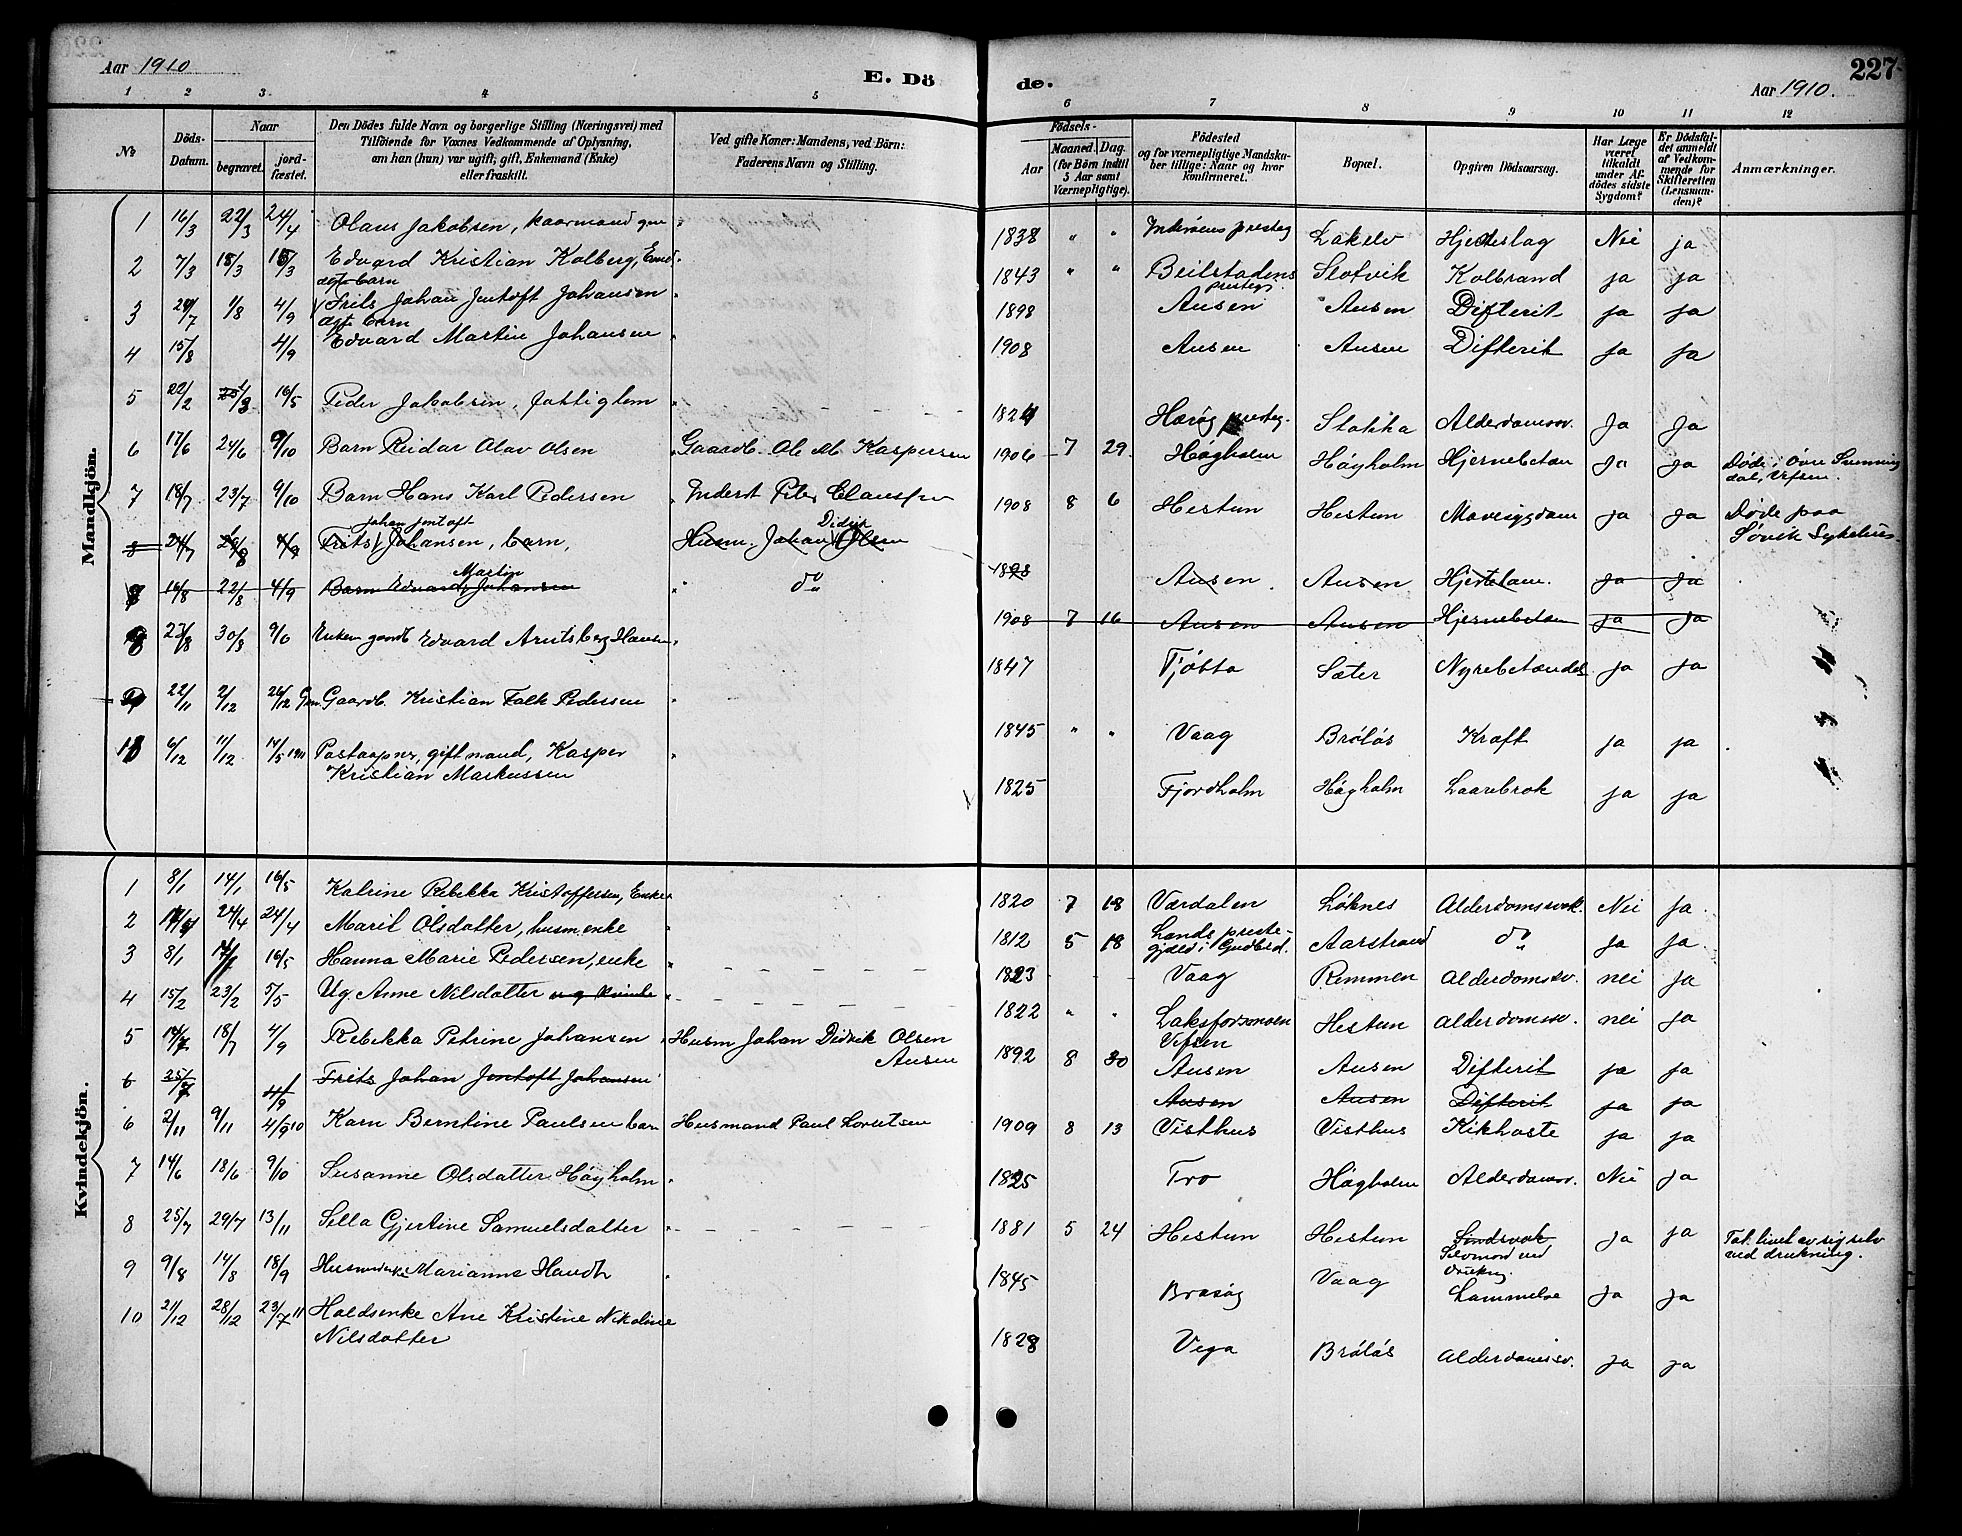 Aar 1910
E. Dö
de.
Aar 1910.
227
1 2 3. 4 5 6 7 8 9 10 11 12
No
Döds-Datum.
Naar
begravet.
jord-fæstet.
Den Dödes fulde Navn og borgerlige Stilling (Næringsvei) med
Tilföiende for Voxnes Vedkommende af Oplysning,
om han (hun) var ugift, gift, Enkemand (Enke)
eller fraskilt.
Ved gifte Koner: Mandens, ved Börn:
Faderens Navn og Stilling.
Födsels-
Aar
Maaned. Dag.
(for Börn indtil
5 Aar samt
Værnepligtige).
Födested
og for værnepligtige Mandska-
ber tillige: Naar og hvor
konfirmeret.
Bopæl.
Opgiven Dödsaarsag.
Har Læge
været
tilkaldt
under Af-
dödes sidste
Sygdom?
Er Dödsfal-
det anmeldt
af Vedkom-
mende for
Skifteretten
(Lensman-
den)?
Anmærkninger.
Mandkjön.
1 16/3 22/3 24/4 Olaus Jakobsen, kaarmand gm " 1838 " " Inderøens presteg Lakelv Hjerteslag Nei ja
2 7/3 18/3 18/3 Edvard Kristian Kolberg, Enkd. 1843 " " Beitstadens presteg. Slotvik Kolbrand ja ja
ægte barn
3 29/7 1/8 4/9 Frits Johan Jentoft Johansen " 1898 Ausen Ausen Difterit ja ja
ægte barn
4 15/8 4/9 Edvard Martin Johansen " 1908 Ausen Ausen Difterit ja ja
5 22/2 1/3 16/5 Peder Jakobsen, fattiglem " 1824 Herøy presteg. Stokka Alderdomssv. ja ja
6 17/6 24/6 9/10 Barn Reidar Olav Olsen Gaardb. Ole M. Kaspersen 1906 7 29 Høyholm Høyholm Hjernebetæn ja ja Døde i Øvre Svenning
dal, Vefsen.
7 18/7 23/7 9/10 Barn Hans Karl Pedersen Inderst Peter Clausen 1908 8 6 Hestun Hestun Mavesygdom ja ja Døde paa
Søvik Sykehus
8 24/7 4/9 Frits Johan Jentoft Johansen, barn, Husm. Johan Didrik Olsen 1898 Ausen Ausen Hjertelam. ja ja
9 16/8 22/8 4/9 Barn Edvard Martin Johansen " do " 1908 7 16 Ausen Ausen Hjernebetæn ja ja
8 23/8 30/8 9/10 Enkem. gaardb Edvard Arntsberg Hansen " 1847 Tjøtta Sæter Nyrebetændels ja ja
9 22/11 2/12 26/12 Gm. Gaardb. Kristian Falk Pedersen " 1845 " " Vaag Brøløs Kræft ja ja
10 6/12 11/12 14/5 1911 Postaapner, gift mand, Kasper
Kristian Markussen " 1825 Fjordholm Høyholm Laarebrok ja ja
Kvindekjön.
1 8/1 14/1 16/5 Katrine Rebekka Kristoffersen, Enke " 1820 7 18 Værdalen Løknes Alderdomssvak. Nei ja
2 24/4 24/4 Marit Olsdatter, husm.enke " 1812 5 18 Lands preste-
gjæld i Gudbrd. Aarstrand do " ja ja
3 8/1 14/1 16/5 Hanna Marie Pedersen, enke " 1823 Vaag Remmen Alderdomssv. nei ja
4 15/2 23/2 5/5 Ug. Anne Nilsdatter ug kvinde " 1822 " " Laksforsmoen
Vefsen Hestun Alderdomssv. nei ja
5 14/7 18/7 4/9 Rebekka Petrine Johansen Husm Johan Didrik Olsen
Ausen 1892 8 30 Ausen Ausen Difterit ja ja
6 25/7 4/9 Frits Johan Jentoft Johansen Ausen Ausen Difterit ja ja
6 2/11 9/11 4/9 10 Karn Berntine Paulsen barn Husmand Paul Lorntsen 1909 8 13 Visthus Visthus Kikhoste ja ja
7 14/6 18/6 9/10 Susanne Olsdatter Høyholm " 1825 Tro Høyholm Alderdomssv. Nei ja
8 25/7 29/7 13/11 Sella Gjertine Samuelsdatter " 1881 5 24 Hestun Hestun Sindsvak
Selvmord ved
drukng. ja ja Tok livet av sig selv
ved drukning.
9 9/8 14/8 18/9 Husmdenke Marianne Haudh " 1845 Brasøy Vaag Lammelse ja ja
10 21/12 28/12 23/7 11 Holdsenke Ane Kristine Nikoline
Nilsdatter 1828 Vega Brøløs Alderdomssv. ja ja